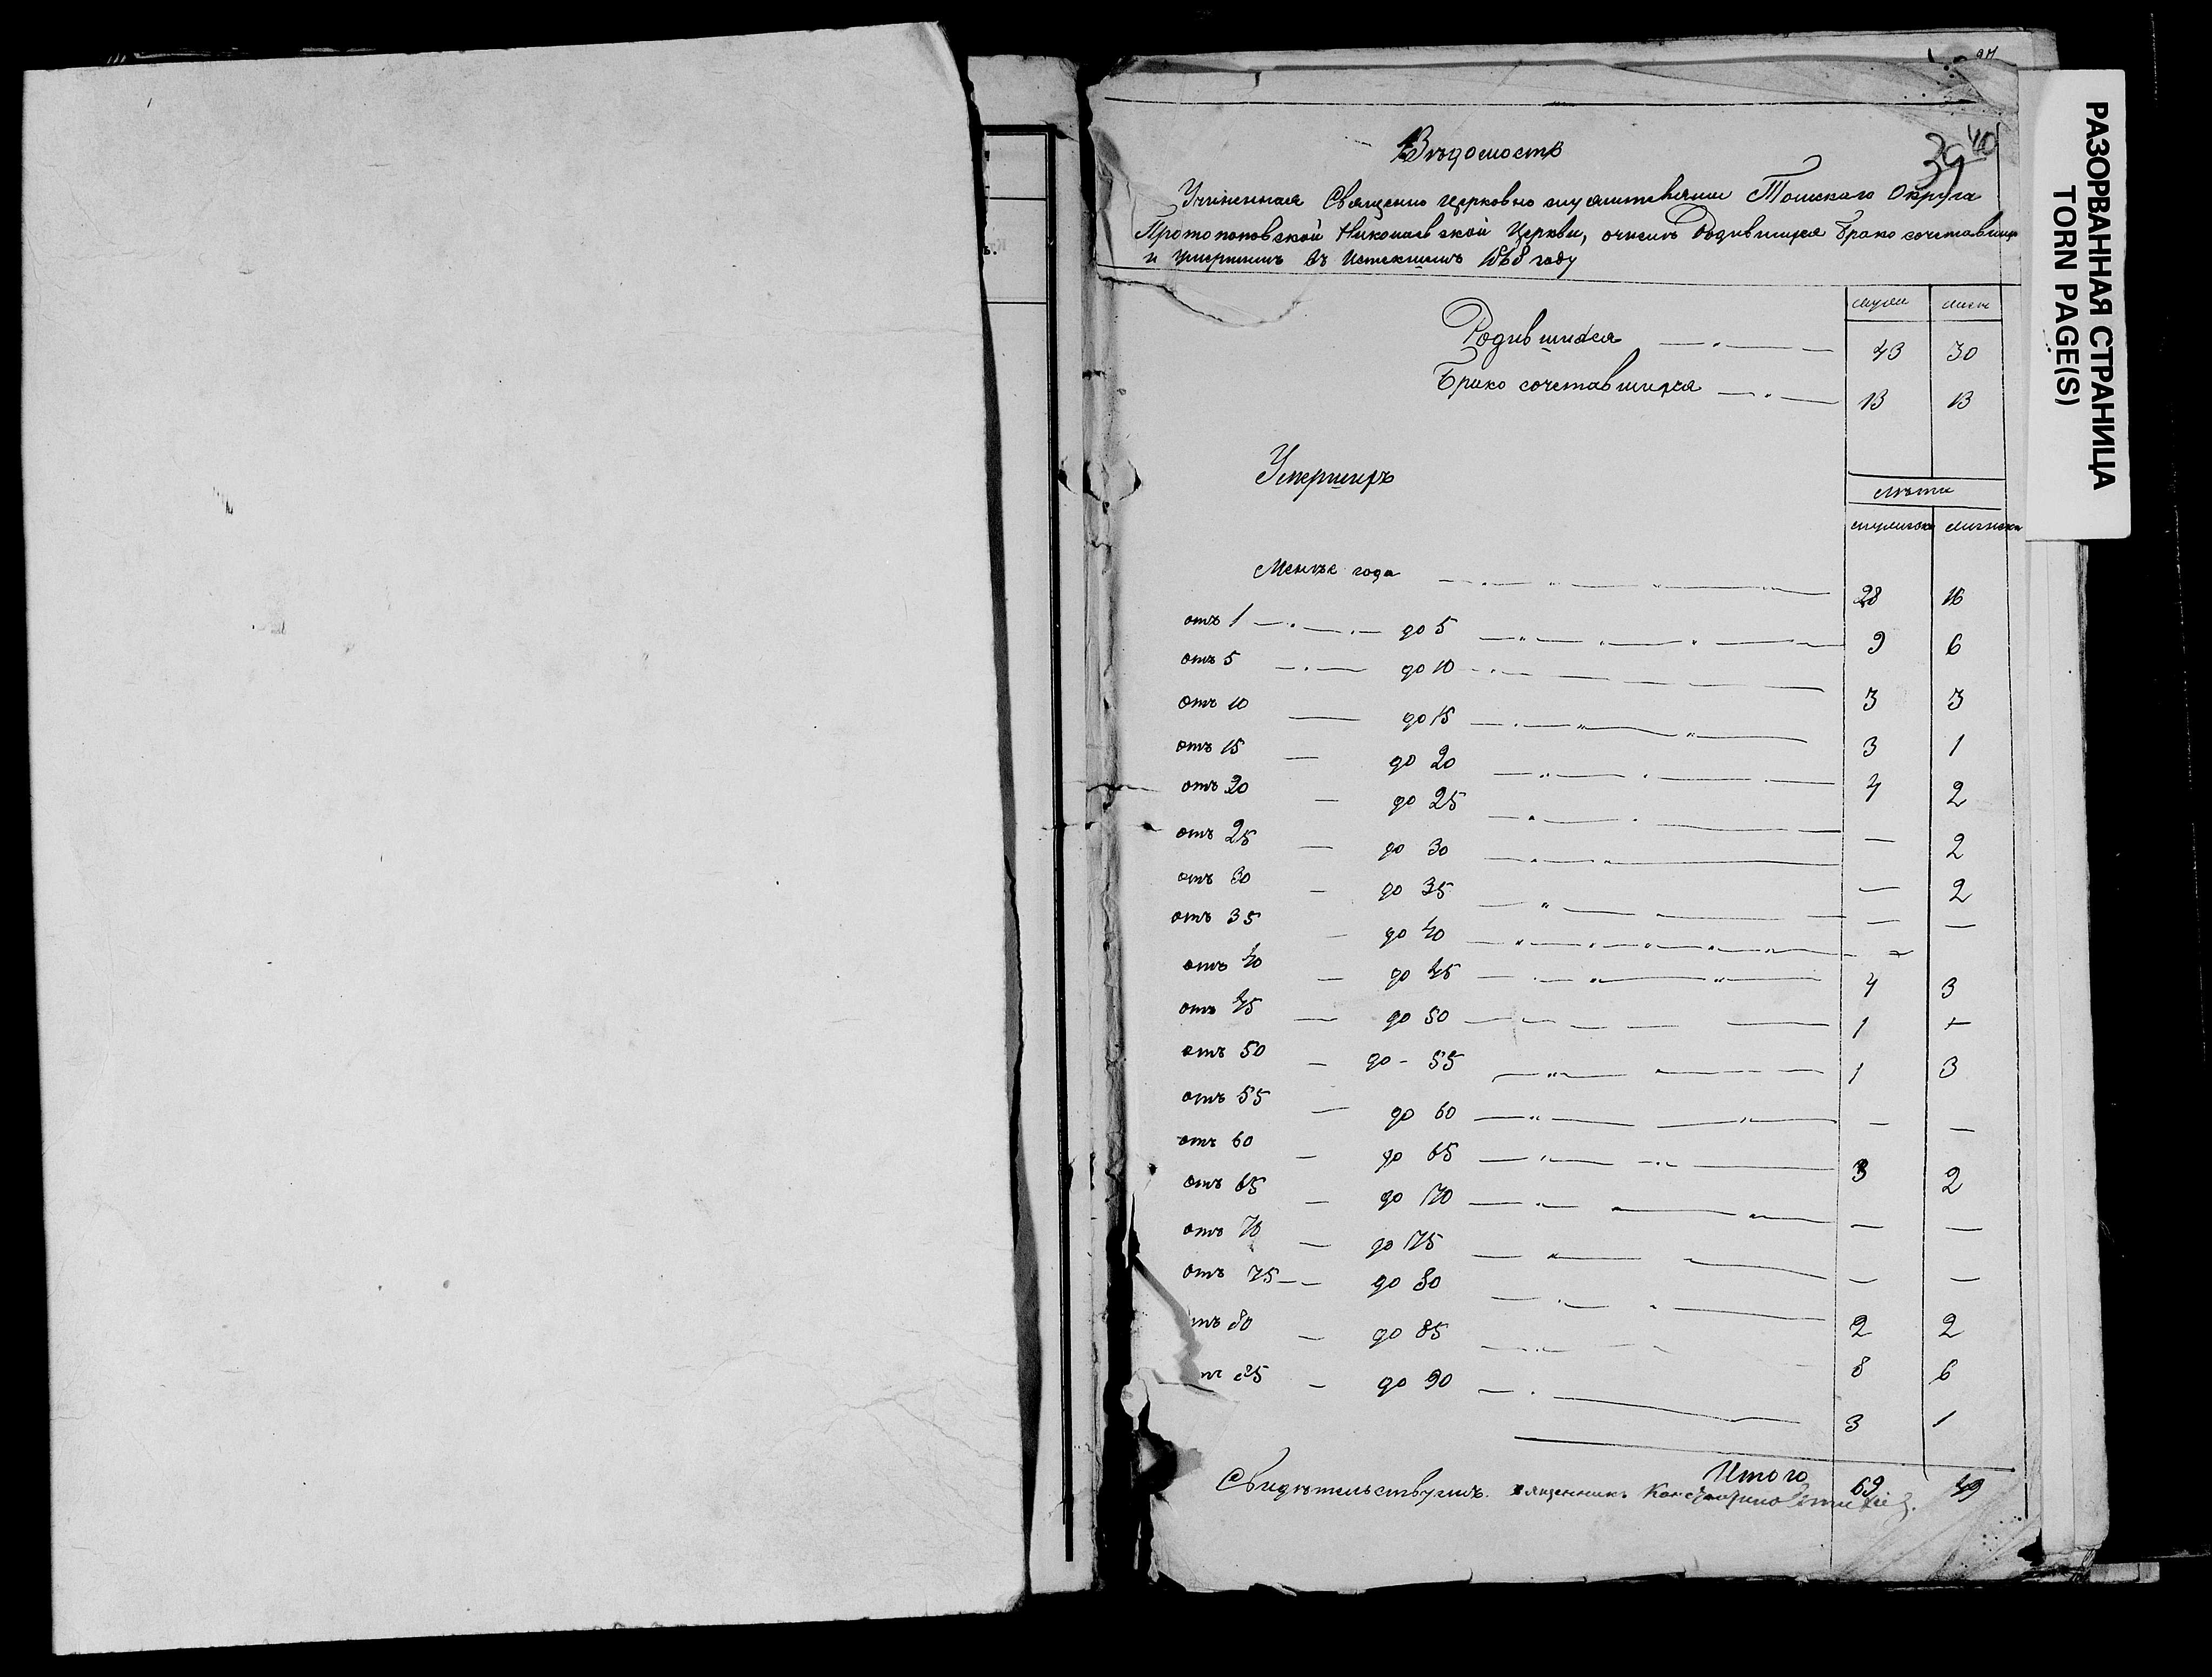 39 40
Вѣдомость
Учиненная Священно церковно служителями Томскаго Округа
Протопоповской Николаевской Церкви, о числѣ Родившихся Брако сочетавших
и умершихъ въ Истекшемъ 1868 году
мужеи женс
Родившихся 43 30
Брако сочетавшихся 13 13
Умершихъ
лѣты
мужеска женска
Менѣе года 28 16
отъ 1 до 5 9 6
отъ 5 до 10 3 3
отъ 10 до 15 3 1
отъ 15 до 20 4 2
отъ 20 до 25 — 2
отъ 25 до 30 — 2
отъ 30 до 35 — —
отъ 35 до 40 —
отъ 40 до 45 4 3
отъ 45 до 50 1 —
отъ 50 до - 55 1 3
отъ 55 до 60 — —
отъ 60 до 65 3 2
отъ 65 до 70 — —
отъ 70 до 75 — —
отъ 75 до 80 2 2
тъ 80 до 85 8 6
ъ 85 до 90 3 1
Итого 69 49
Свидѣтельствуемъ. священникъ
РАЗОРВАННАЯ СТРАНИЦА
TORN PAGE(S)